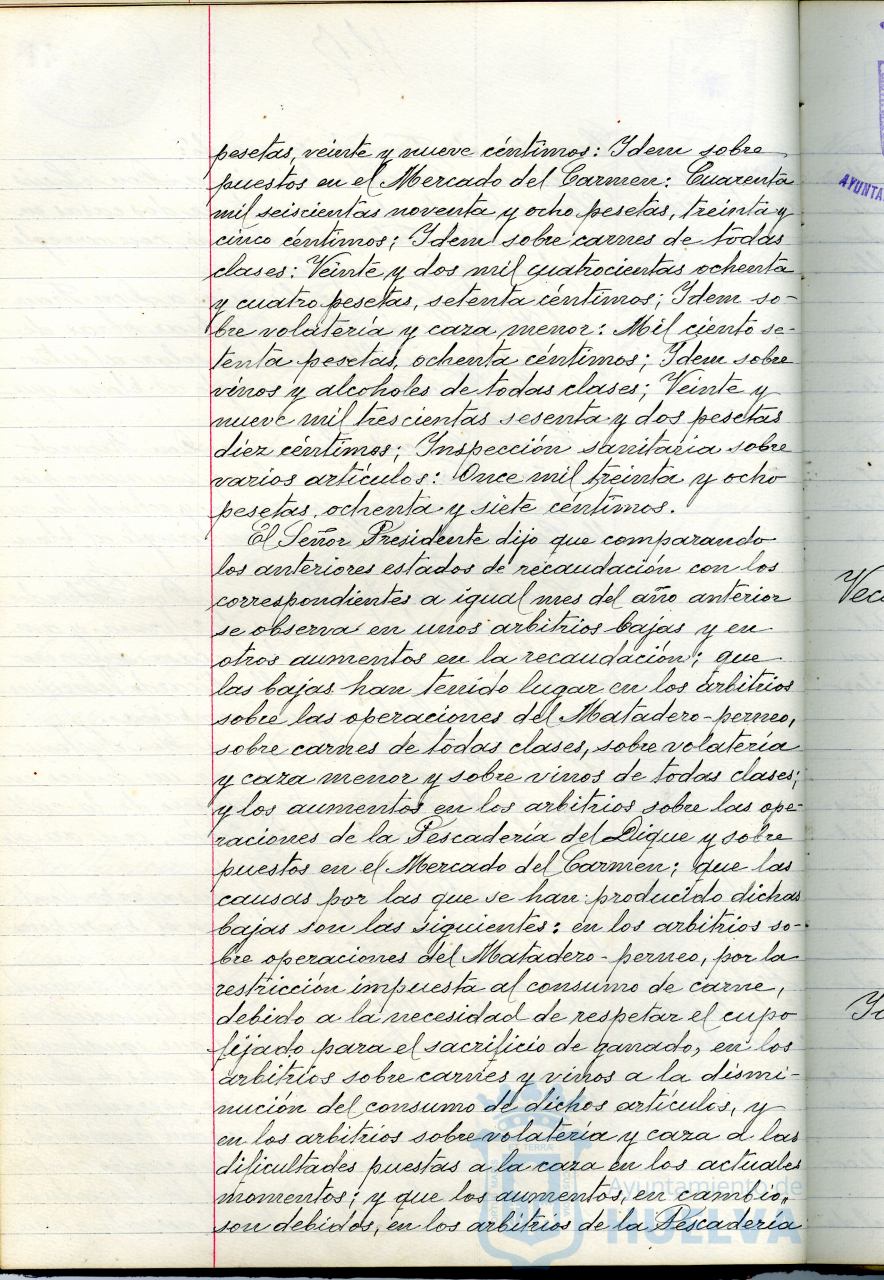 pesetas, veinte y nueve céntimos: Idem sobre
puestos en el Mercado del Carmen: Cuarenta
mil seiscientas noventa y ocho pesetas, treinta y
cinco céntimos; Idem sobre carnes de todas
clases: Veinte y dos mil cuatrocientas ochenta
y cuatro pesetas, setenta céntimos; Idem so-
bre volatería y caza menor: Mil ciento se-
tenta pesetas, ochenta céntimos; Idem sobre
vinos y alcoholes de todas clases; Veinte y
nueve mil trescientas sesenta y dos pesetas
diez céntimos; Inspección sanitaria sobre
varios artículos: Once mil treinta y ocho
pesetas, ochenta y siete céntimos.
El Señor Presidente dijo que comparando
los anteriores estados de recaudación con los
correspondientes a igual mes del año anterior
se observa en unos arbitrios bajas y en
otros aumentos en la recaudación; que
las bajas han tenido lugar en los arbitrios
sobre las operaciones del Matadero-perneo,
sobre carnes de todas clases, sobre volatería
y caza menor y sobre vinos de todas clases;
y los aumentos en los arbitrios sobre las ope-
raciones de la Pescadería del Dique y sobre
puestos en el Mercado del Carmen; que las
causas por las que se han producido dichas
bajas son las siguientes: en los arbitrios so-
bre operaciones del Matadero-perneo, por la
restricción impuesta al consumo de carne,
debido a la necesidad de respetar el cupo
fijado para el sacrificio de ganado, en los
arbitrios sobre carnes y vinos a la dismi-
nución del consumo de dichos artículos, y
en los arbitrios sobre volatería y caza a las
dificultades puestas a la caza en los actuales
momentos; y que los aumentos, en cambio,
son debidos, en los arbitrios de la Pescadería
Ayuntamiento de
HUELVA